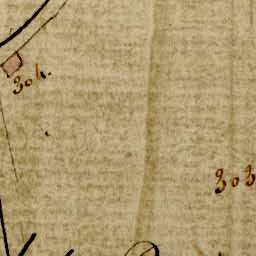 304.
303